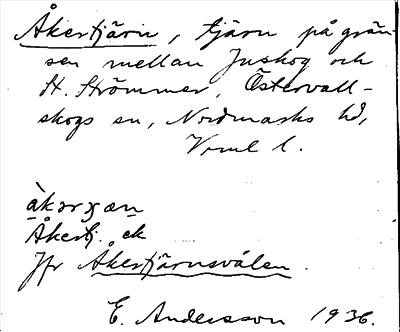 Åkertjärn, tjärn på grän-
sen mellan Juskog och
St. Strömmer, Östervall-
skogs sn, Nordmarks hd,
Vrml l.
åkərɟæn
Åkertj. ek
Jfr Åkertjärnsvålen.
E. Andersson 1936.